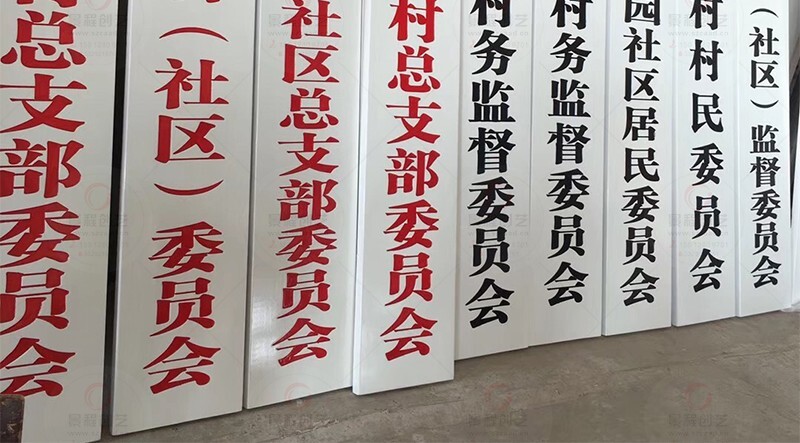 村总支部委员会
（社区）委员会
社区总支部委员会
村总支部委员会
村务监督委员会
村务监督委员会
园社区居民委员会
村村民委员会
（社区）监督委员会
景程创艺